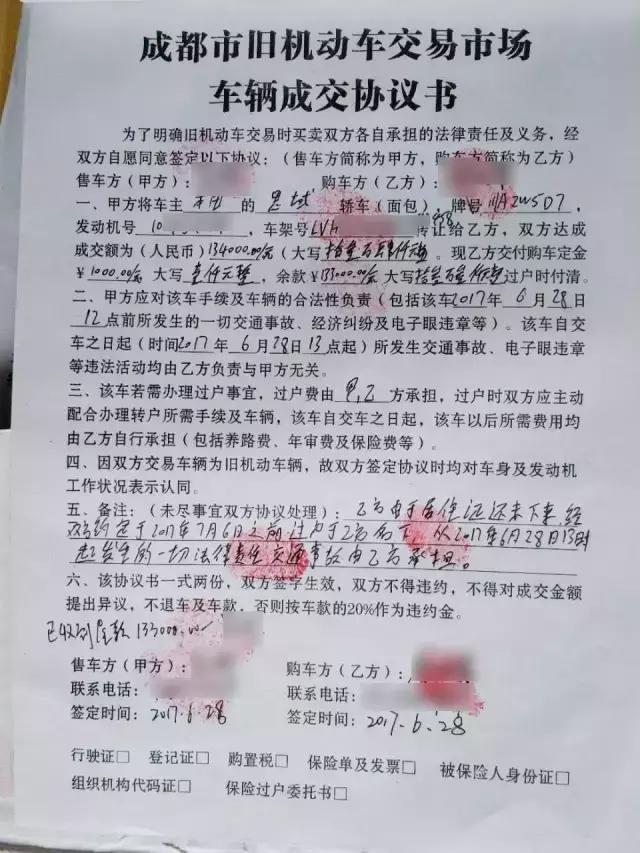 成都市旧机动车交易市场
车辆成交协议书
为了明确旧机动车交易时买卖双方各自承担的法律责任及义务，经
双方自愿同意签定以下协议：（售车方简称为甲方，购车方简称为乙方）
售车方（甲方）： 购车方（乙方）：
一、甲方将车主 的 思域 轿车（面包），牌号 川A2W5D7，
发动机号 10 车架号 LVH 转让给乙方，双方达成
成交额为（人民币）134000.00元（大写 拾叁万肆仟元整 。现乙方交付购车定金
¥1000.00元 大写 壹仟元整，余款¥133000.00元 大写 拾叁万叁仟元整 过户时付清。
二、甲方应对该车手续及车辆的合法性负责（包括该车2017年 6 月 28 日
12 点前所发生的一切交通事故、经济纠纷及电子眼违章等）。该车自交
车之日起（时间2017 年 6 月28日 13 点起）所发生交通事故、电子眼违章
等违法活动均由乙方负责与甲方无关。
三、该车若需办理过户事宜，过户费由 甲,乙 方承担，过户时双方应主动
配合办理转户所需手续及车辆，该车自交车之日起，该车以后所需费用均
由乙方自行承担（包括养路费、年审费及保险费等）。
四、因双方交易车辆为旧机动车辆，故双方签定协议时均对车身及发动机
工作状况表示认同。
五、备注：（未尽事宜双方协议处理）： 乙方由于居住证还未下来，经
双方约定于2017年7月6日之前过户于乙方名下，从2017年6月28日13时
起发生的一切法律责任 交通事故由乙方承担。
六、该协议书一式两份，双方签字生效，双方不得违约，不得对成交金额
提出异议，不退车及车款，否则按车款的20%作为违约金。
已收到尾款133000.00
售车方（甲方）： 购车方（乙方）：
联系电话： 联系电话：
签定时间：2017.6.28 签定时间：2017.6.28
行驶证□ 登记证□ 购置税□ 保险单及发票□ 被保险人身份证□
组织机构代码证□ 保险过户委托书□